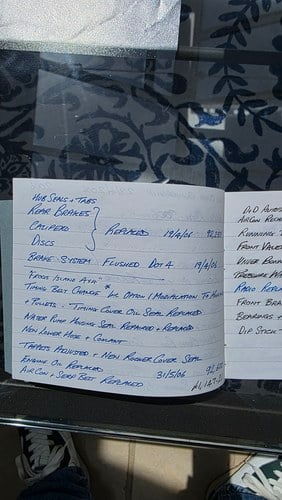 HUB SEALS + TABS
REAR BRAKES
CALIPERS
REPLACED 19/4/06 92,
DISCS
BRAKE SYSTEM FLUSHED DOT 4 19/4/06
TIMING BELT CHANGE * INC OPTION 1 MODIFICATION TO
+ PULLEYS - TIMING COVER OIL SEAL REPLACED
WATER PUMP HOUSING SEAL REPAIRED + REPLACED
NEW LOWER HOSE + COOLANT
TAPPETS ADJUSTED + NEW ROCKER COVER SEAL
ENGINE OIL REPLACED 31/5/06 92,
AIRCON + SERP BELT REPLACED
DVD
AIRCON
RUNNING
FRONT
UNDER
PRESSURE
RADIO
FRONT BRA
BEARINGS +
DIP STICK